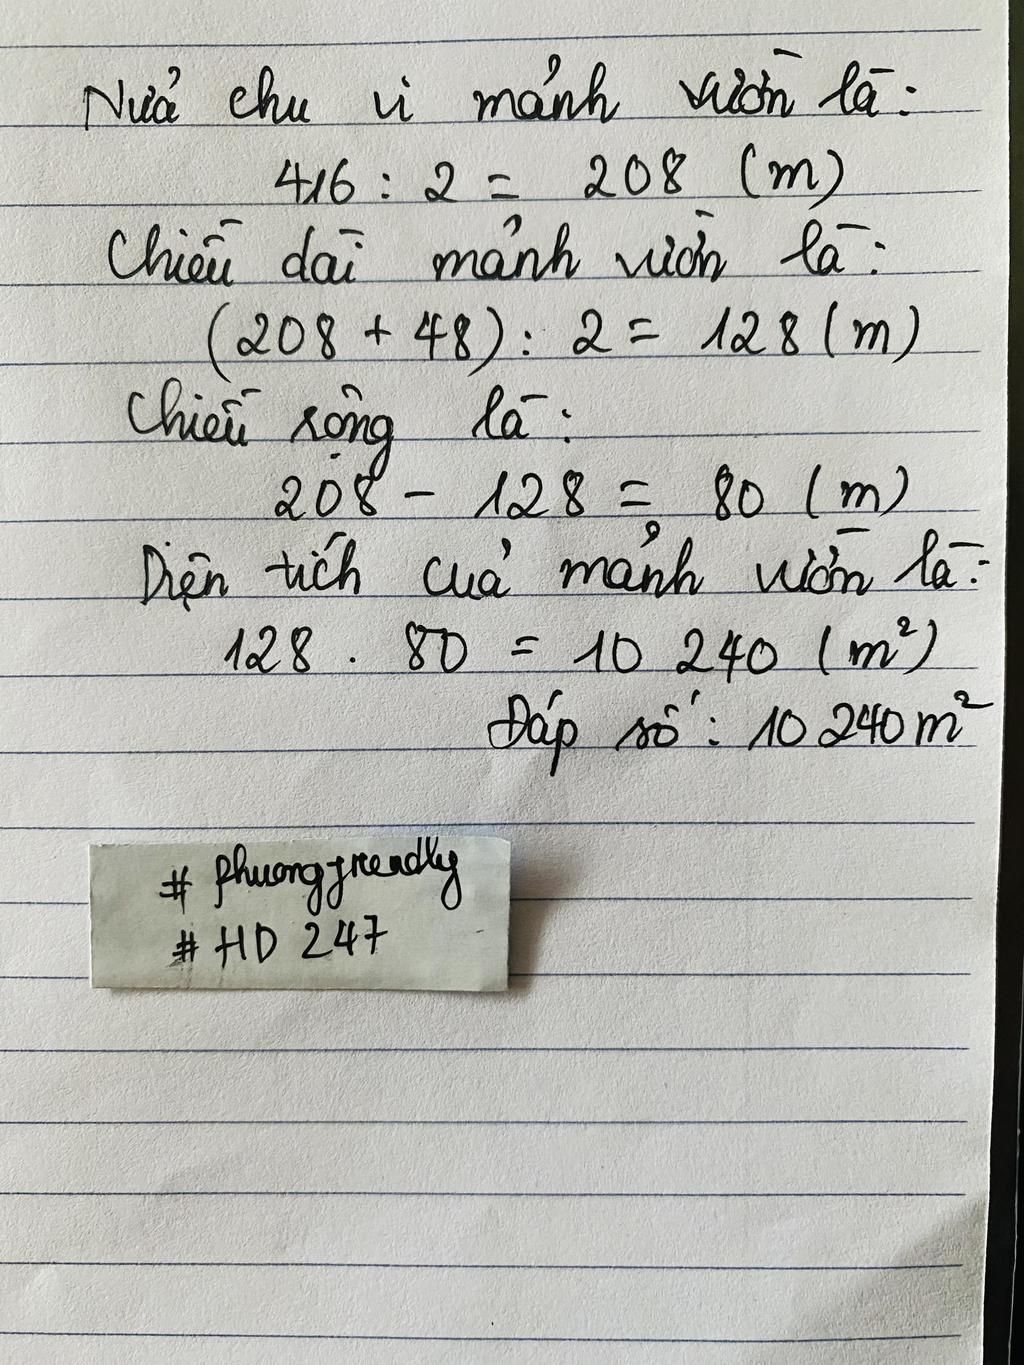 Nửa chu vi mảnh vườn là:
416 : 2 = 208 (m)
Chiều dài mảnh vườn là:
(208 + 48) : 2 = 128 (m)
Chiều rộng là:
208 - 128 = 80 (m)
Diện tích của mảnh vườn là:
128 . 80 = 10 240 (m²)
Đáp số: 10 240 m²
# phuongfriendly
# HD 247